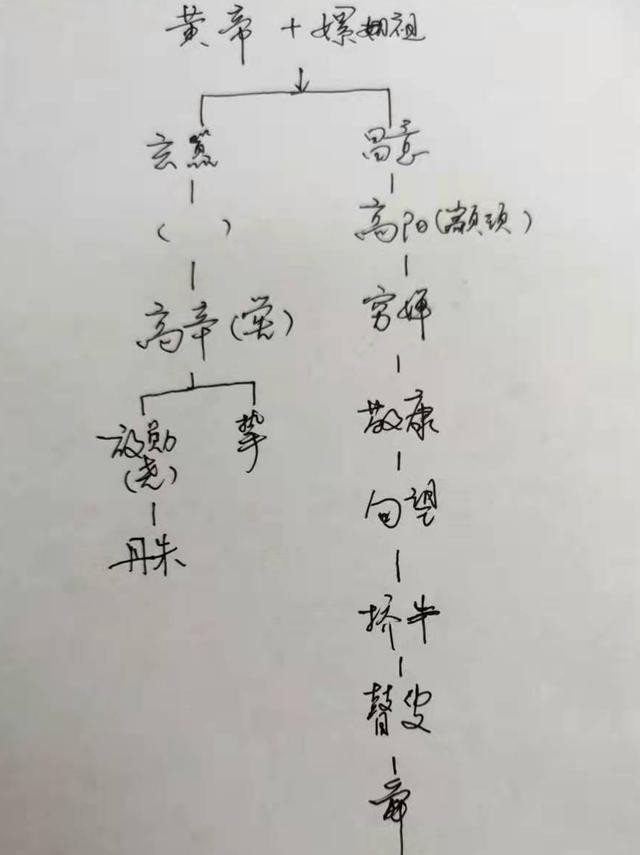 黄帝 + 嫘祖
玄嚣 昌意
( ) 高阳(颛顼)
高辛(喾) 穷婵
放勋 挚 敬康
(尧)
句望
丹朱
牛
瞽叟